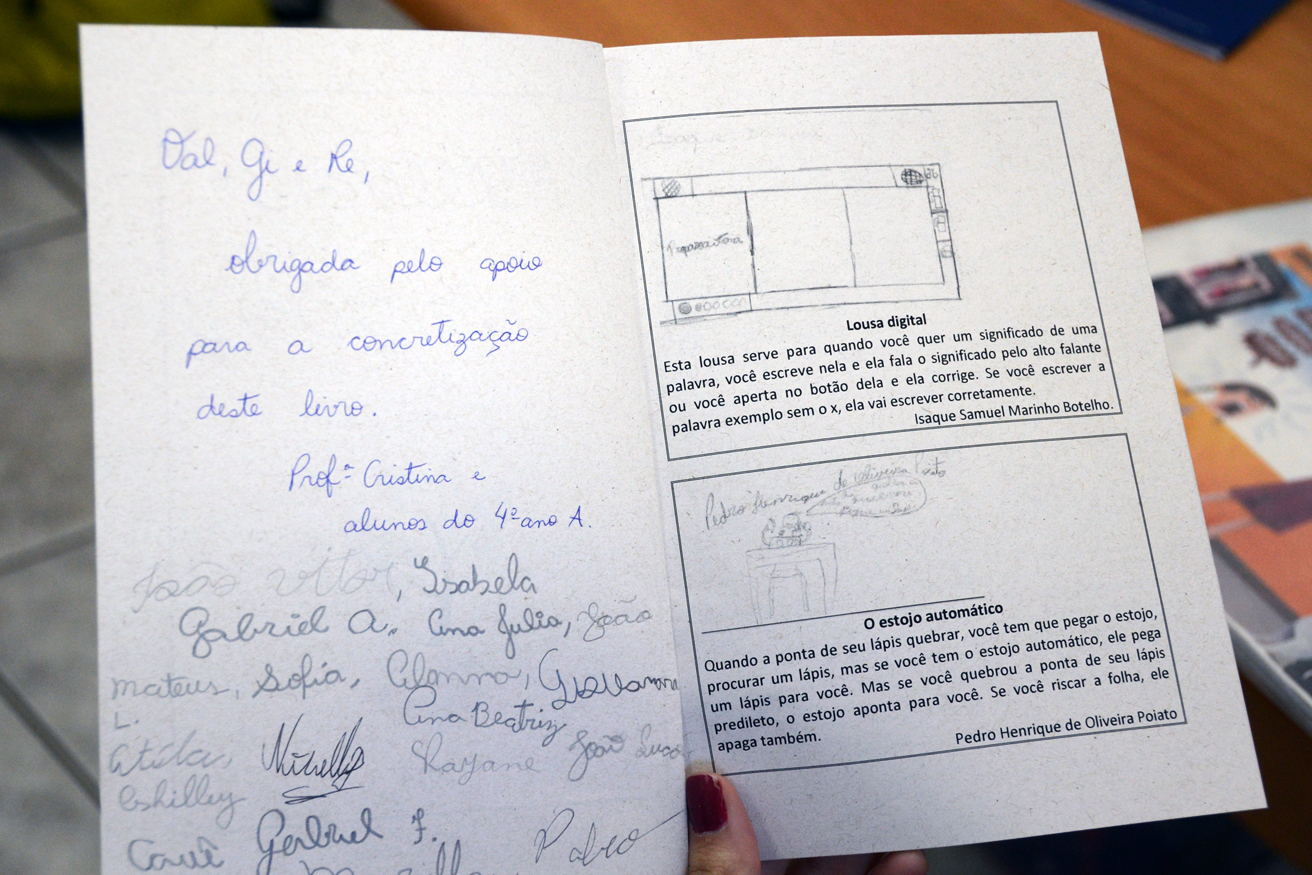 Val, Gi e Re,
obrigada pelo apoio
para a concretização
deste livro.
Profª Cristina e
alunos do 4º ano A.
João Vitor, Isabela
Gabriel A., Ana Julia, João
Mateus, Sofia,
L.
Ana Beatriz
Rayane João Lucas
Cauê Gabriel F.
Pablo
Lousa digital
Esta lousa serve para quando você quer um significado de uma
palavra, você escreve nela e ela fala o significado pelo alto falante
ou você aperta no botão dela e ela corrige. Se você escrever a
palavra exemplo sem o x, ela vai escrever corretamente.
Isaque Samuel Marinho Botelho.
Pedro Henrique de Oliveira
O estojo automático
Quando a ponta de seu lápis quebrar, você tem que pegar o estojo,
procurar um lápis, mas se você tem o estojo automático, ele pega
um lápis para você. Mas se você quebrou a ponta de seu lápis
predileto, o estojo aponta para você. Se você riscar a folha, ele
apaga também.
Pedro Henrique de Oliveira Poiato